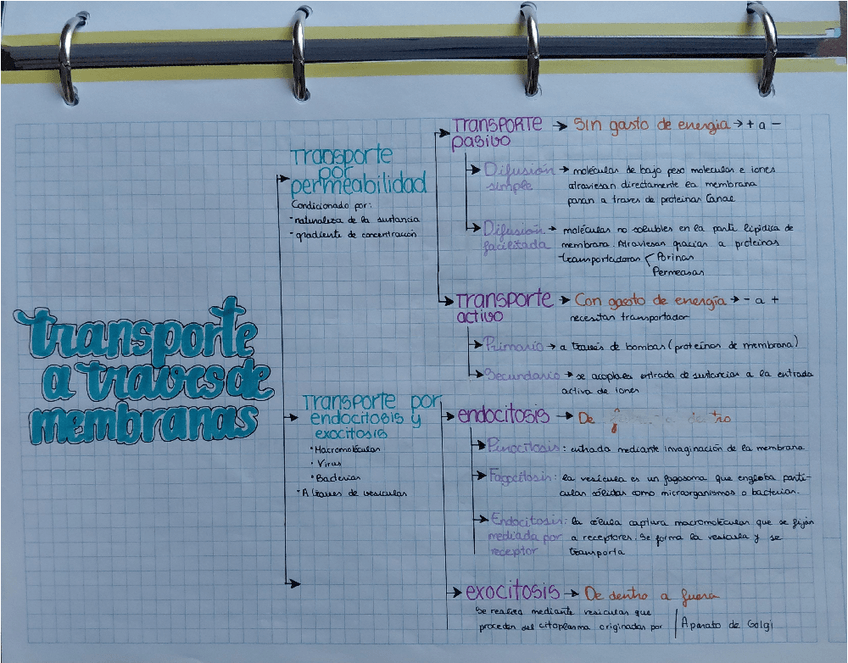 transporte
a traves de
membranas
Transporte
por
permeabilidad
Condicionado por:
-naturaleza de la sustancia
-gradiente de concentración
Transporte → Sin gasto de energia → + a -
pasivo
Difusión → moléculas de bajo peso molecular e iones
simple atraviesan directamente la membrana
pasan a traves de proteinas Canal
Difusión → moléculas no solubles en la parte lipídica de
facilitada membrana. Atraviesan gracias a proteinas
transportadoras Porinas
Permeasas
Transporte → Con gasto de energia → - a +
activo necesitan transportador
Primario → a través de bombas (proteínas de membrana)
Secundario → se acopla entrada de sustancias a la entrada
activa de iones
Transporte por
endocitosis y
exocitosis
• Macromoléculas
• Virus
• Bacterias
• A traves de vesiculas
endocitosis → De dentro
Pinocitosis: entrada mediante invaginación de la membrana
Fagocitosis: la vesícula es un fagosoma que engloba partí-
culas sólidas como microorganismos o bacterias.
Endocitosis: la célula captura macromoléculas que se fijan
mediada por a receptores. Se forma la vesícula y se
receptor transporta
exocitosis → De dentro a fuera
Se realiza mediante vesiculas que
proceden del citoplasma originadas por Aparato de Golgi